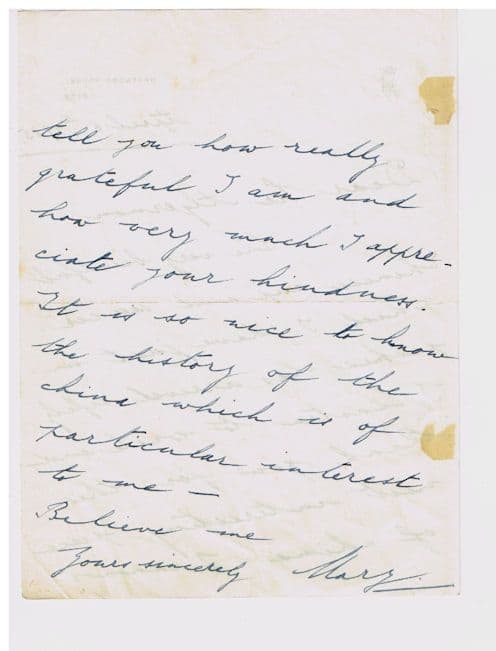 tell you how really
grateful I am and
how very much I appre-
ciate your kindness.
It is so nice to know
the history of the
china which is of
particular interest
to me —
Believe me
Yours sincerely Mary.